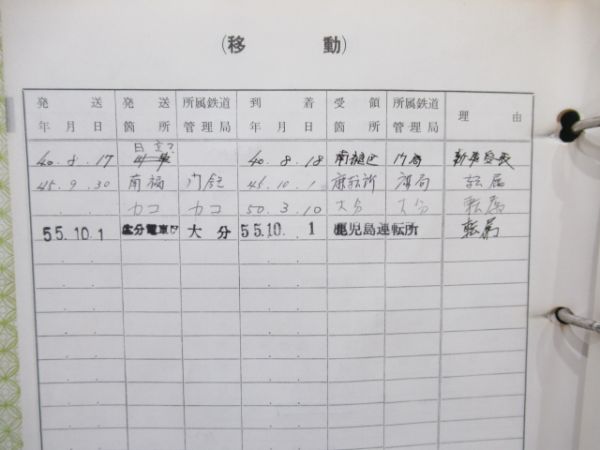 (移 動)
発 送 年 月 日 発 送 箇 所 所属鉄道 管理局 到 着 年 月 日 受 領 箇 所 所属鉄道 管理局 理 由
40.8.17 40.8.18 南福区 門局 新車受表
45.9.30 南福 45.10.1 転属
カコ カコ 50.3.10 大分 大分 転属
55.10.1 大分電車区 大分 55.10.1 鹿児島運転所 転属